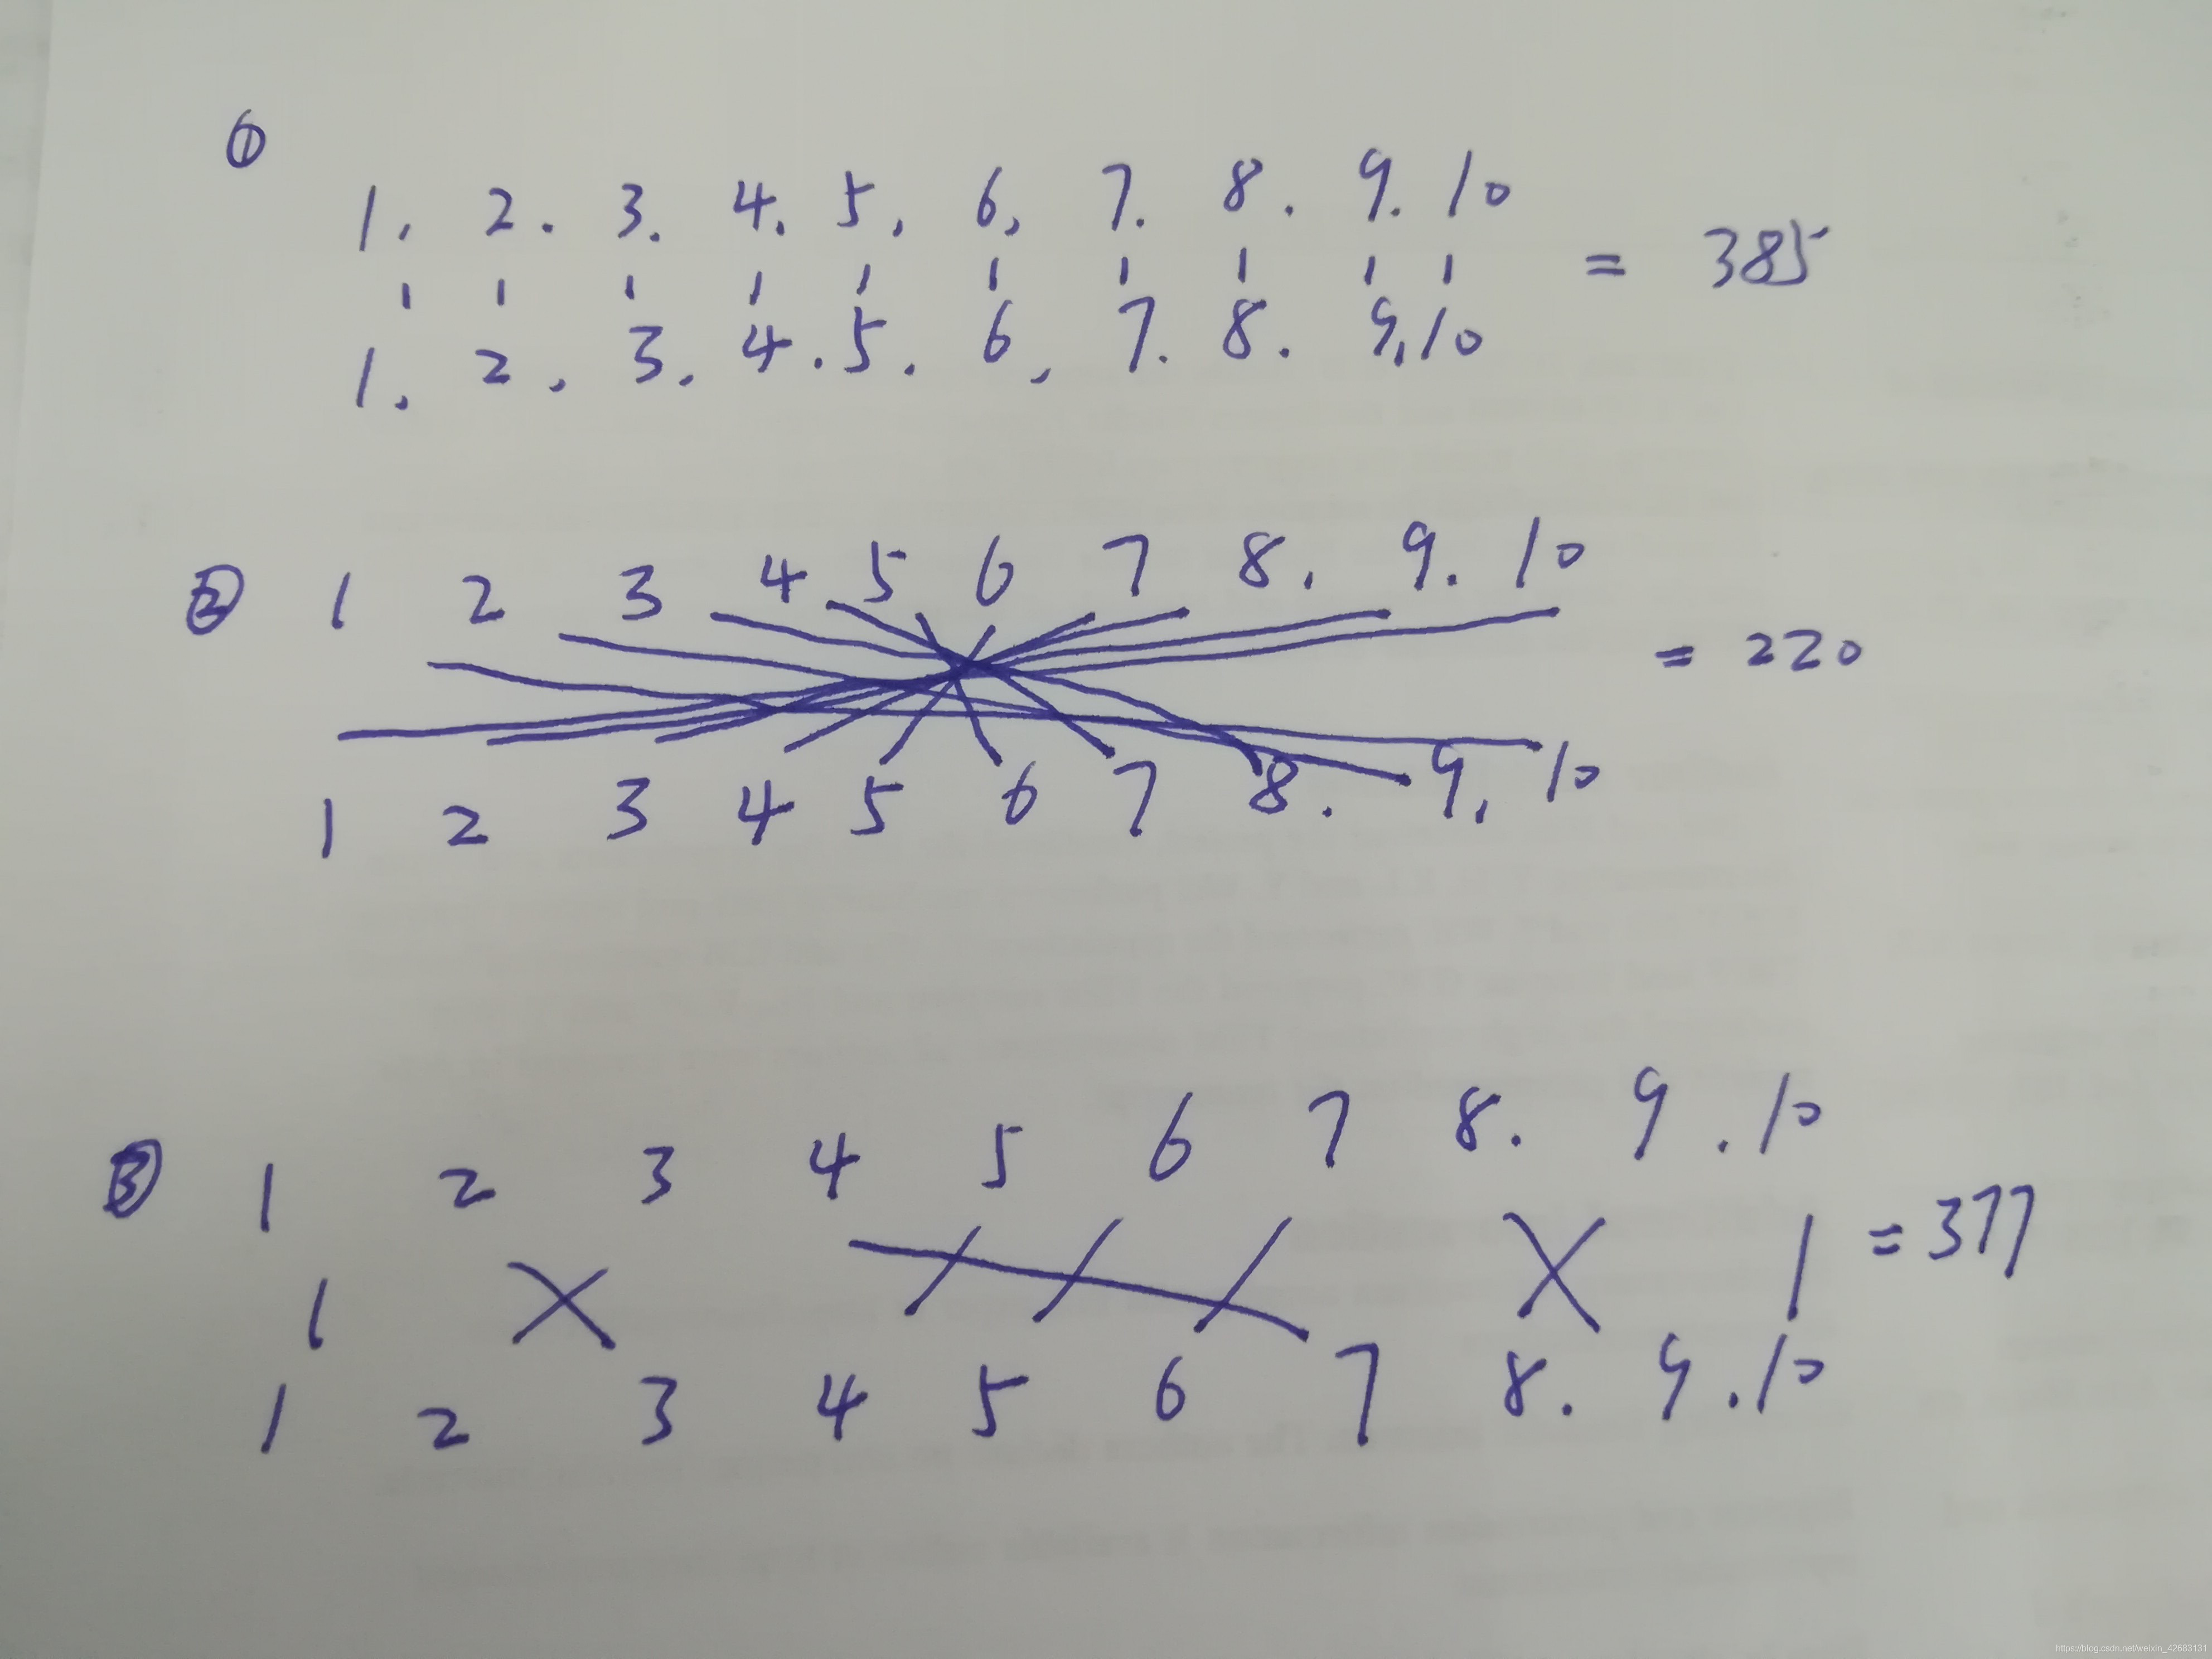 ①
1, 2. 3. 4. 5, 6, 7. 8. 9. 10
= 385
1, 2, 3, 4. 5. 6, 7. 8. 9,10
② 1 2 3 4 5 6 7 8. 9. 10
= 220
1 2 3 4 5 6 7 8. 9, 10
③ 1 2 3 4 5 6 7 8. 9 .10
= 377
1 2 3 4 5 6 7 8. 9 .10
https://blog.csdn.net/weixin_42683131